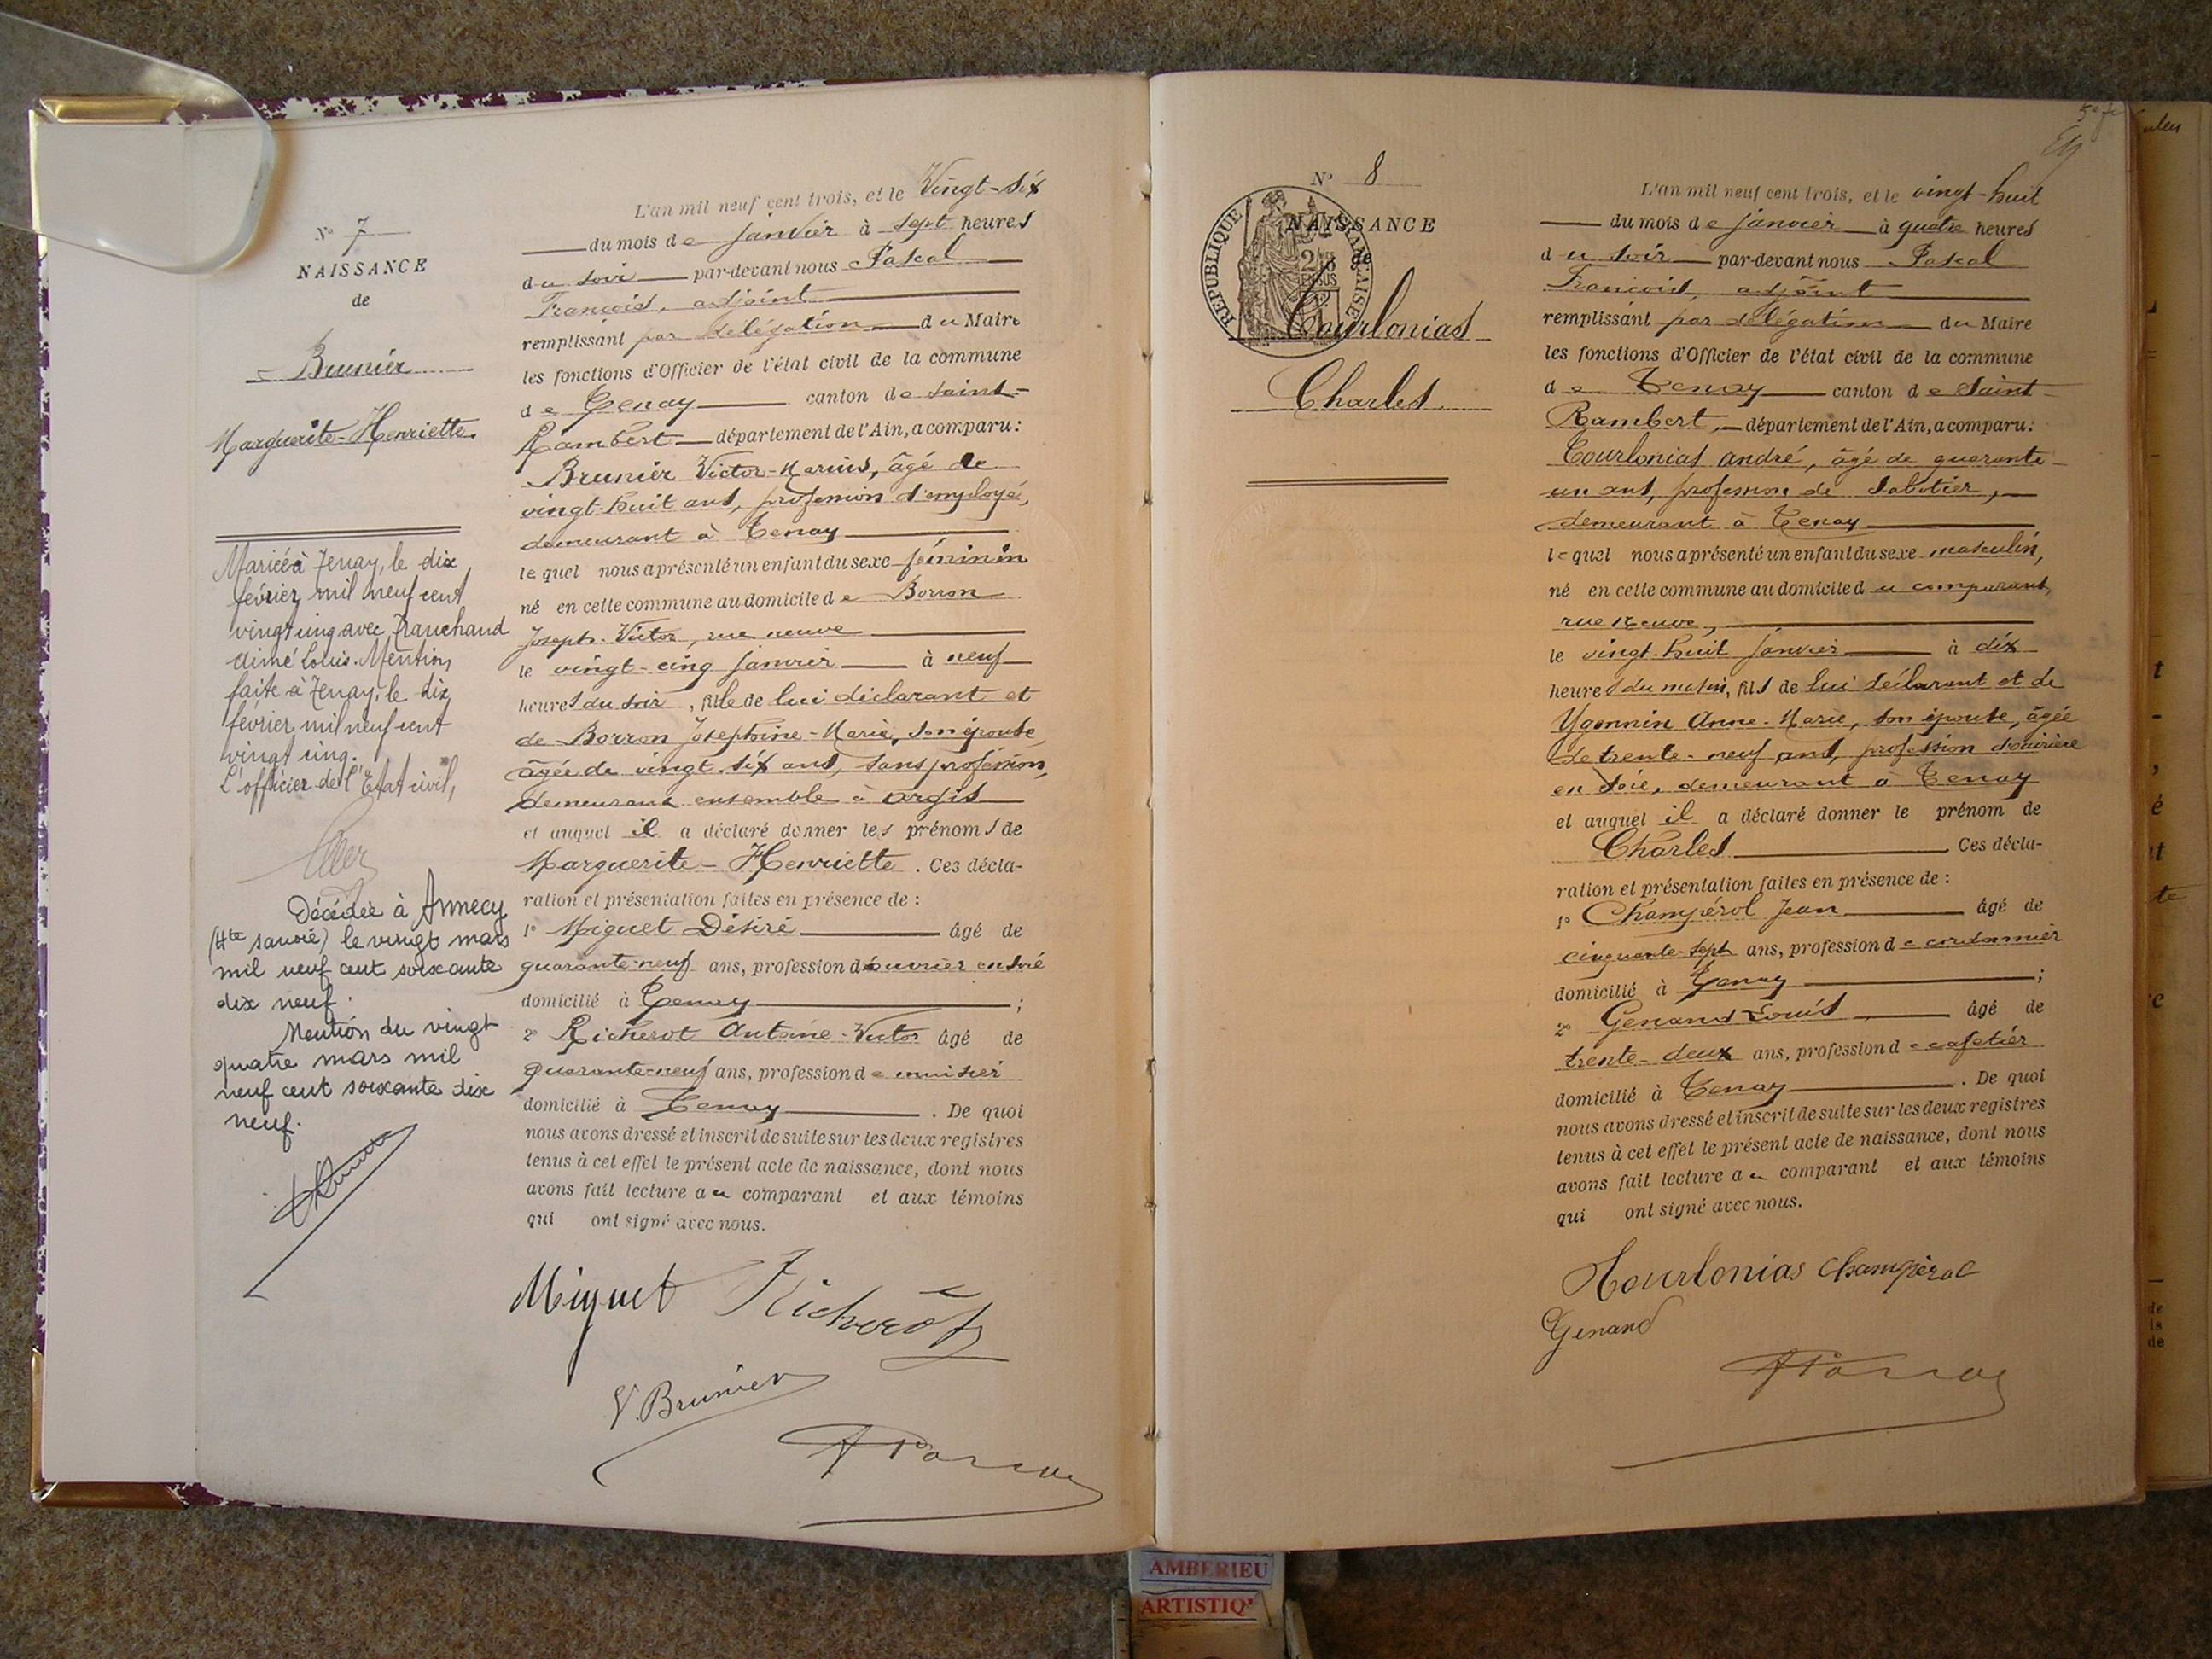 N° 7
NAISSANCE
de
Brunier
Marguerite-Henriette
Mariée à Tenay, le dix
février mil neuf cent
vingt cinq avec Tranchand
Aimé Louis. Mention
faite à Tenay, le dix
février mil neuf cent
vingt cinq.
L'officier de l'Etat civil,
Décédée à Annecy
(Hte savoie) le vingt mars
mil neuf cent soixante
dix neuf.
Mention du vingt
quatre mars mil
neuf cent soixante dix
neuf.
L'an mil neuf cent trois, et le Vingt-six
du mois de janvier à sept heures
du soir par-devant nous Pascal
François, adjoint
remplissant par délégation du Maire
les fonctions d'Officier de l'état civil de la commune
de Tenay canton de Saint-
Rambert département de l'Ain, a comparu:
Brunier Victor-Marius, âgé de
vingt-huit ans, profession d'employé,
demeurant à Tenay
lequel nous a présenté un enfant du sexe féminin
né en cette commune au domicile de Borron
Joseph-Victor, rue neuve
le vingt-cinq janvier à neuf
heures du soir, fille de lui déclarant et
de Borron Joséphine-Marie, son épouse,
âgée de vingt-six ans, sans profession,
demeurant ensemble à Argis
et auquel il a déclaré donner les prénoms de
Marguerite-Henriette. Ces décla-
ration et présentation faites en présence de :
1° Miguet Désiré âgé de
quarante-neuf ans, profession d'ouvrier en soie
domicilié à Tenay ;
2° Richerot Antoine-Victor âgé de
quarante-neuf ans, profession de
domicilié à Tenay. De quoi
nous avons dressé et inscrit de suite sur les deux registres
tenus à cet effet le présent acte de naissance, dont nous
avons fait lecture au comparant et aux témoins
qui ont signé avec nous.
Miguet Richerot
V. Brunier
N° 8
NAISSANCE
de
REPUBLIQUE FRANÇAISE
Tourlonias
Charles
L'an mil neuf cent trois, et le vingt-huit
du mois de janvier à quatre heures
du soir par-devant nous Pascal
François, adjoint
remplissant par délégation du Maire
les fonctions d'Officier de l'état civil de la commune
de Tenay canton de Saint-
Rambert, département de l'Ain, a comparu:
Tourlonias André, âgé de quarante-
un ans, profession de sabotier,
demeurant à Tenay
lequel nous a présenté un enfant du sexe masculin,
né en cette commune au domicile du comparant,
rue neuve,
le vingt-huit janvier à dix
heures du matin, fils de lui déclarant et de
Ygonnin Anne-Marie, son épouse, âgée
de trente-neuf ans, profession d'ouvrière
en soie, demeurant à Tenay
et auquel il a déclaré donner le prénom de
Charles Ces décla-
ration et présentation faites en présence de :
1° Champérol Jean âgé de
cinquante-sept ans, profession de cordonnier
domicilié à Tenay ;
2° Genand Louis âgé de
trente-deux ans, profession de cafetier
domicilié à Tenay. De quoi
nous avons dressé et inscrit de suite sur les deux registres
tenus à cet effet le présent acte de naissance, dont nous
avons fait lecture au comparant et aux témoins
qui ont signé avec nous.
Tourlonias Champérol
Genand
AMBERIEU
ARTISTIQ'